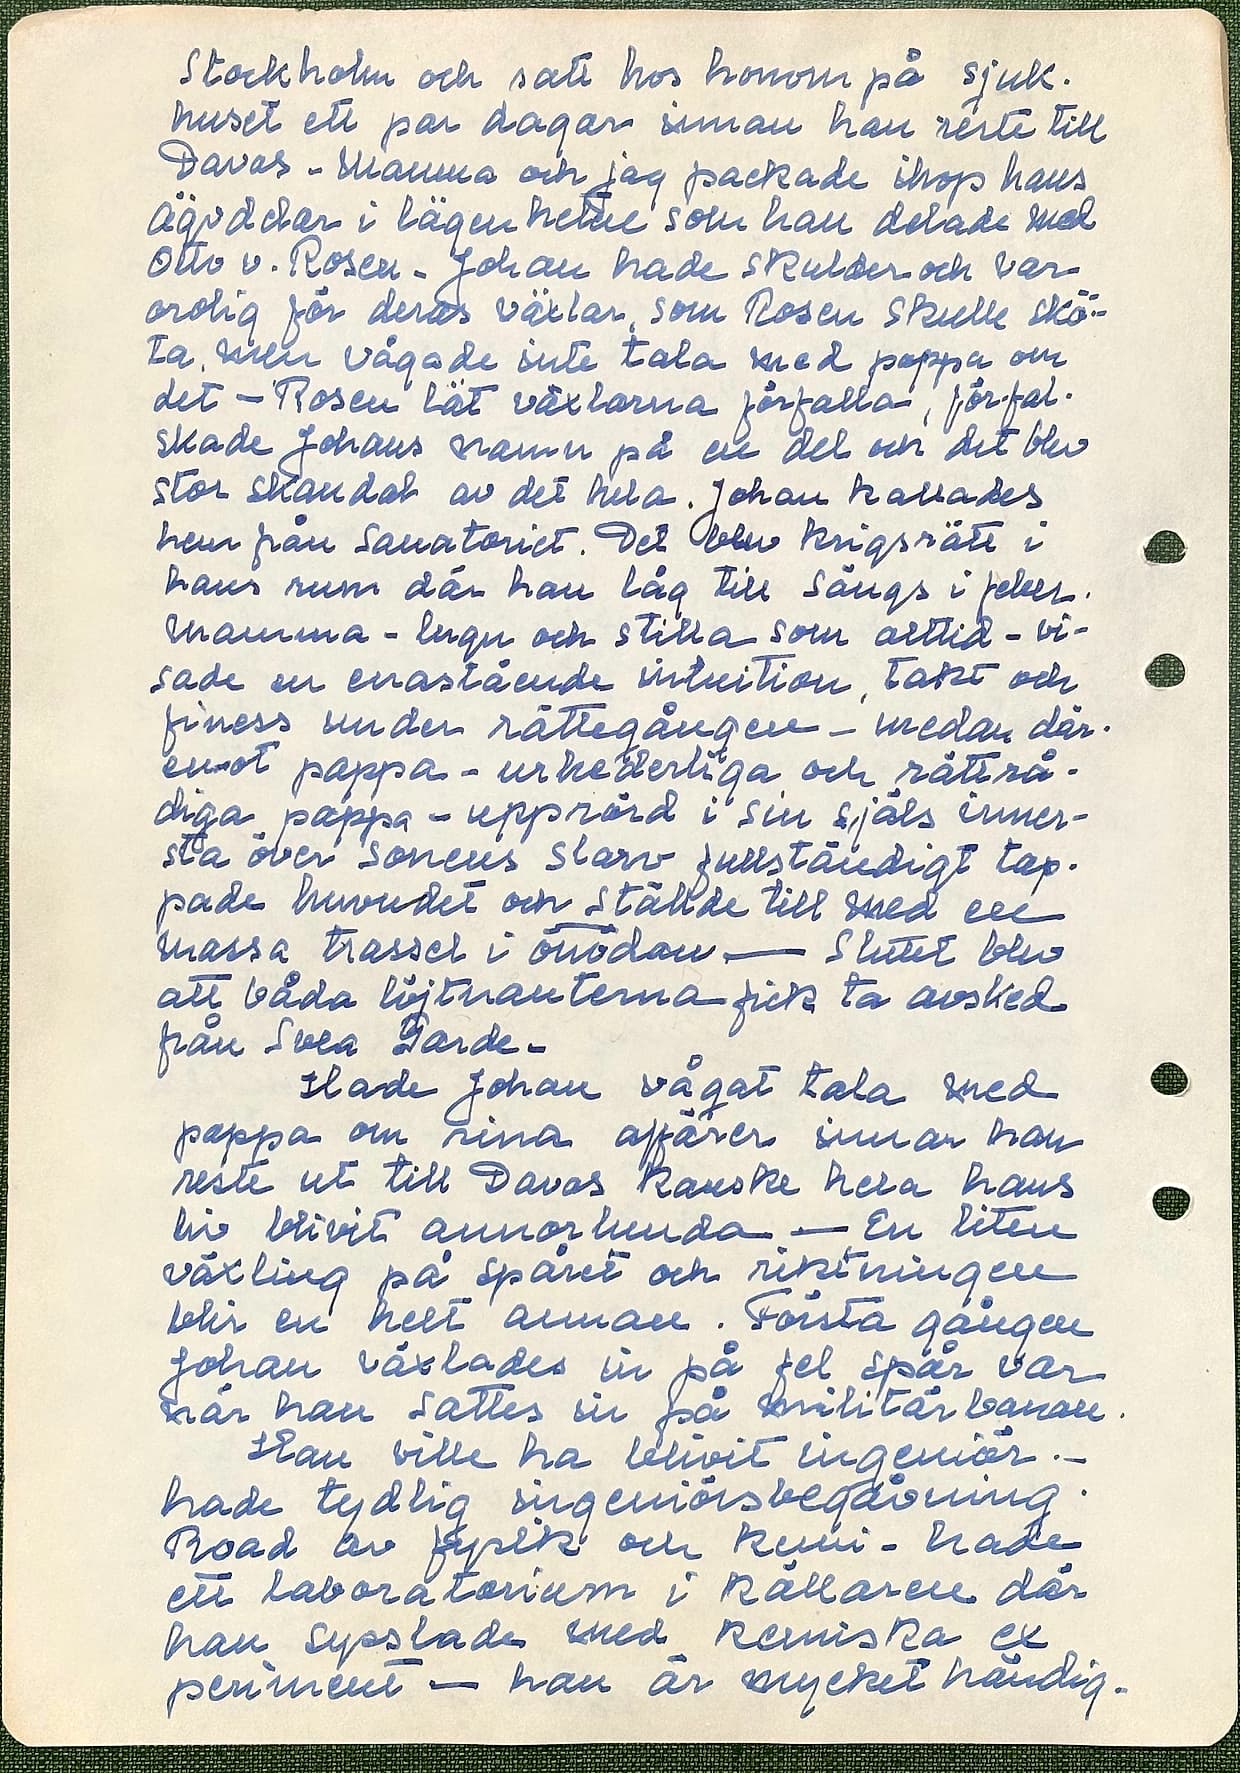 Stockholm och satt hos honom på sjuk-
huset ett par dagar innan han reste till
Davos - Mamma och jag packade ihop hans
ägodelar i lägenheten som han delade med
Otto v. Rosen - Johan hade skulder och var
orolig för deras växlar, som Rosen skulle skö-
ta, men vågade inte tala med pappa om
det - Rosen lät växlarna förfalla, förfal-
skade Johans namn på en del och det blev
stor skandal av det hela. Johan kallades
hem från Sanatoriet. Det blev krigsrätt i
hans rum där han låg till sängs i feber.
Mamma - lugn och stilla som alltid - vi-
sade en enastående intuition, takt och
finess under rättegången - medan där-
emot pappa - urhederliga och rättrå-
diga pappa - upprörd i sin själs inner-
sta över sonens slarv fullständigt tap-
pade huvudet och ställde till med en
massa trassel i onödan — Slutet blev
att båda löjtnanterna fick ta avsked
från Svea Garde -
Hade Johan vågat tala med
pappa om sina affärer innan han
reste ut till Davos kanske hela hans
liv blivit annorlunda — En liten
växling på spåret och riktningen
blir en helt annan. Första gången
Johan växlades in på fel spår var
när han sattes in på militärbanan.
Han ville ha blivit ingeniör. -
hade tydlig ingeniörsbegåvning.
Road av fysik och kemi - hade
ett laboratorium i källaren där
han sysslade med kemiska ex
periment — han är mycket händig -